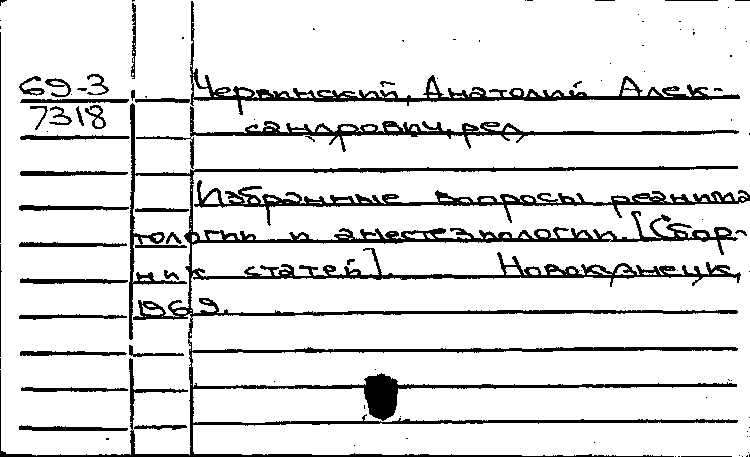 69-3
7318
Червинский, Анатолий Алек-
сандрович, ред.
Избранные вопросы реанима
тологии и анестезиологии. [Сбор-
ник статей]. Новокузнецк,
1969.